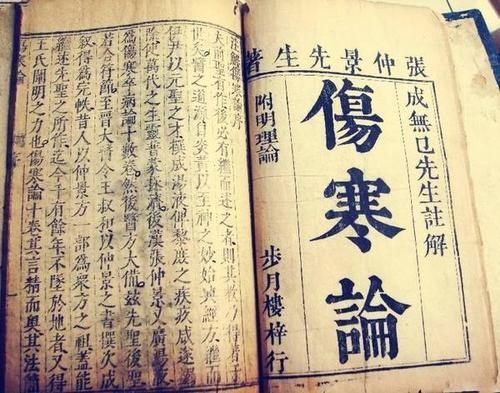 張仲景先生著
成無已先生註解
傷寒論
附明理論
步月樓梓行
註解傷寒論序
夫前聖有作後必有繼而述之者則其教乃得著于
世矣醫之道源自炎黃以至神之妙始興經方繼而
伊尹以元聖之才撰成湯液俾黎庶之疾疢咸遂
除使萬代之生靈普蒙拯濟後漢張仲景又廣湯液
為傷寒卒病論十數卷然後醫方大備茲先聖後聖
若合符節至晉太醫令王叔和以仲景之書撰次成
敘得為完帙昔人以仲景方一部為眾方之祖蓋能
繼述先聖之所作迄今千有餘年不墜於地者又得
王氏闡明之力也傷寒論十卷其言精而奧其法簡
寒論